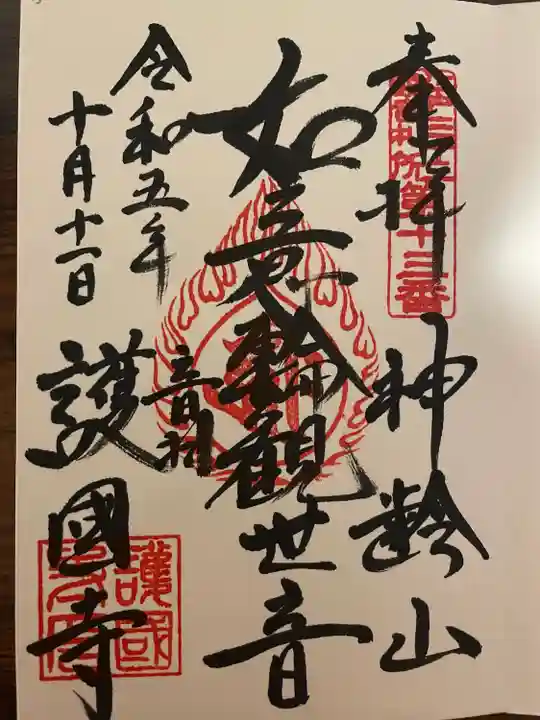 奉拝
神齢山
第十三番
如意輪観世音
令和五年
十月十一日
音羽
護國寺